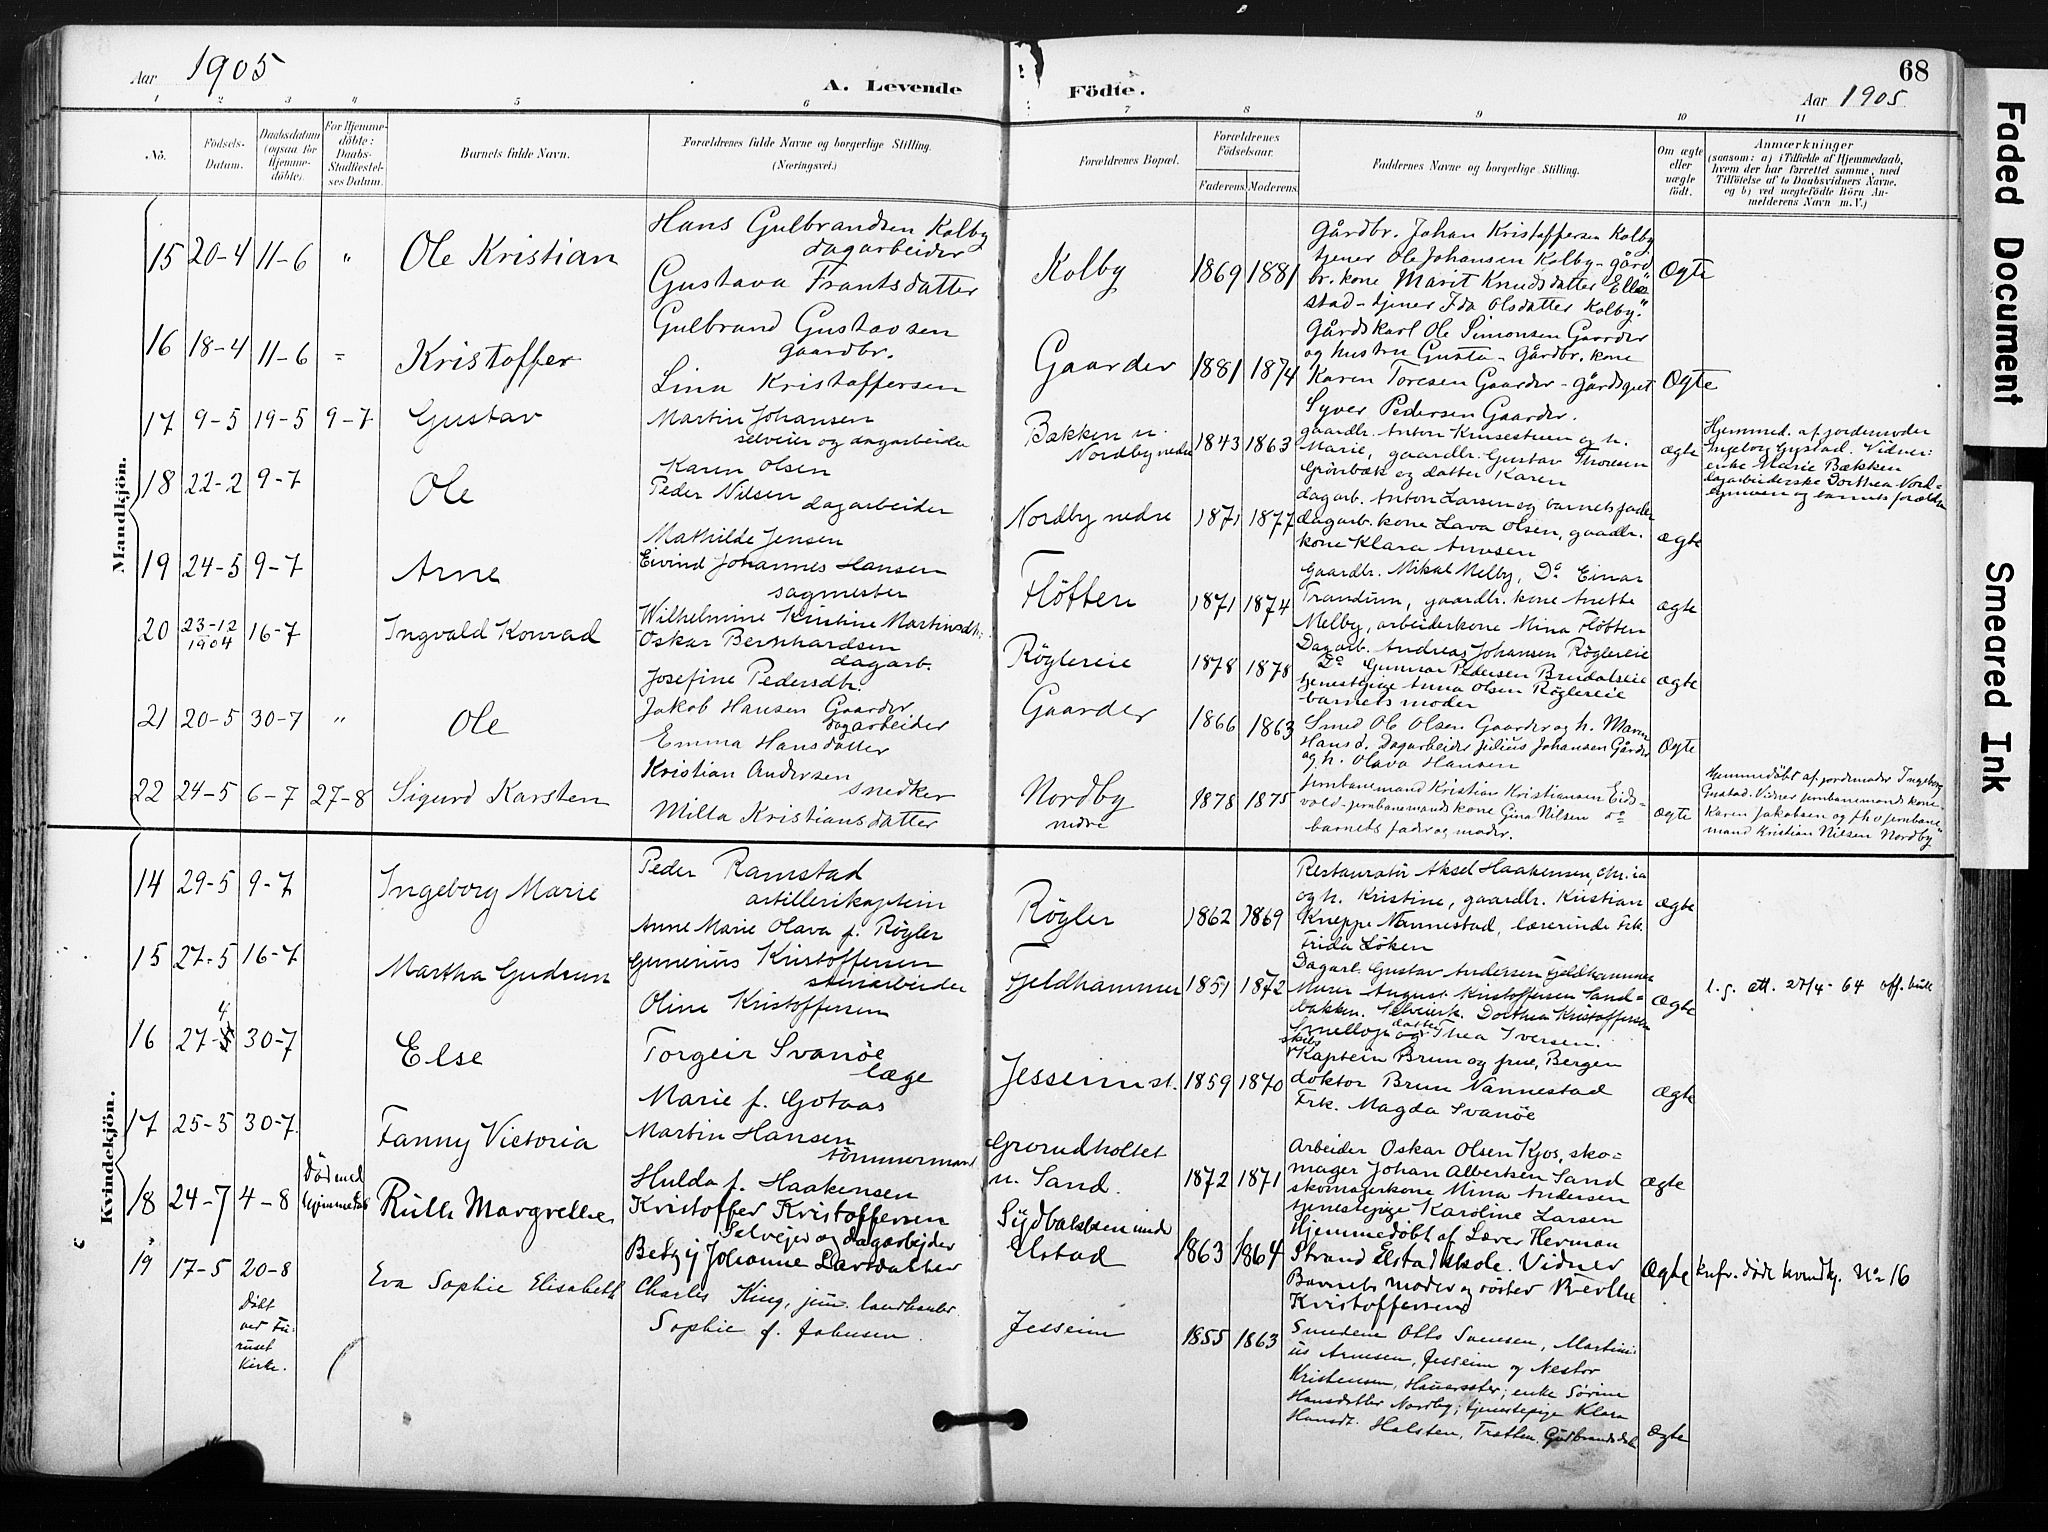 Aar 1905
A. Levende Födte.
68
Aar 1905
1 2 3 4 5 6 7 8 9 10 11
No.
Födsels-
Datum.
Daabsdatum
(ogsaa for
Hjemme-
döbte).
For Hjemme-
döbte:
Daabs-
Stadfæstel-
ses Datum.
Barnets fulde Navn.
Forældrenes fulde Navne og borgerlige Stilling.
(Næringsvei.)
Forældrenes Bopæl.
Forældrenes
Födselsaar.
Faderens. Moderens.
Faddernes Navne og borgerlige Stilling.
Om ægte
eller
uægte
födt.
Anmærkninger
(saasom: a) i Tilfælde af Hjemmedaab,
hvem der har forrettet samme, med
Tilföielse af to Daabsvidners Navne.
og b) ved uægtefödte Börn An-
melderens Navn m. V.)
Mandkjön.
15 20-4 11-6 " Ole Kristian
Hans Gulbrandsen Kolby
dagarbeider
Gustava Frantsdatter
Kolby 1869 1881
Gårdbr. Johan Kristoffersen Kolby
tjener Ole Johansen Kolby - gård
br. kone Marit Knudsdatter Elle
stad - tjener Ida Olsdatter Kolby.
Ægte
16 18-4 11-6 = Kristoffer
Gulbrand Gustavsen
gaardbr.
Lina Kristoffersen
Gaarder 1881 1874
Gårdskarl Ole Simonsen Gaarder
og hustru Gusta - Gårdbr. kone
Karen Toresen Gaarder - gårdsgut
Syver Pedersen Gaarder.
Ægte
17 9-5 19-5 9-7 Gustav
Martin Johansen
selveier og dagarbeider
Karen Olsen
Bækken u.
Nordby nedre 1843 1863
gaardbr. Anton Kinsestuen og h.
Marie, gaardbr. Gustav Thoresen
Grönbæk og datter Karen
ægte
Hjemmed. af jordemoder
Ingeborg Gystad. Vidner:
enke Marie Bækken
dagarbeiderske Dorthea Nord-
og barnets forældre
18 22-2 9-7 Ole
Peder Nilsen
dagarbeider
Mathilde Jensen
Nordby nedre 1871 1877
dagarb. Anton Larsen og barnets fader
dagarb. kone Lava Olsen, gaardbr.
kone Klara Arnesen
ægte
19 24-5 9-7 Arne
Eivind Johannes Hansen
sagmester
Wilhelmine Kristine Martinsdtr.
Flöften 1871 1874
Gaardbr. Mikal Melby, Do. Einar
Trandum, gaardbr. kone Anette
Melby, arbeiderkone Mina Flöften
ægte
20 23-12 1904 16-7 Ingvald Konrad
Oskar Bernhardsen
dagarb.
Josefine Pedersdtr.
Röglereie 1878 1878
Dagarb. Andreas Johansen Röglereie
Do Gunnar Pedersen Brudalseie
tjenestepige Anna Olsen Röglereie
barnets moder
ægte
21 20-5 30-7 " Ole
Jakob Hansen Gaarder
dagarbeider
Emma Hansdatter
Gaarder 1866 1863
Smed Ole Olsen Gaarder og h. Maren
Hansd. Dagarbeider Julius Johansen Gårder
og h. Olava Hansen
Ægte
22 24-5 6-7 27-8 Sigurd Karsten
Kristian Andersen
snedker
Milla Kristiansdatter
Nordby
nedre 1878 1875
Jernbanemand Kristian Kristiansen Eids-
vold - jernbanemands kone Gina Nilsen do
barnets fader og moder.
Ægte
Hjemmedöbt af jordemoder Ingeborg
Gustad. Vidner jernbanemands kone
Karen Jakobsen og jernbane-
mand Kristian Nilsen Nordby
Kvindekjön.
14 29-5 9-7 Ingeborg Marie
Peder Ramstad
artillerikaptein
Anne Marie Olava f. Rögler
Rögler 1862 1869
Restauratör Aksel Haakensen, Chr.ia
og h. Kristine, gaardbr. Kristian
Kneppe Nannestad, lærerinde Frk.
Frida Löken
ægte
15 27-5 16-7 Martha Gudrun
Gunerius Kristoffersen
stenarbeider
Oline Kristoffersen
Fjeldhammer 1851 1872
Dagarb. Gustav Andersen Fjeldhammer
Murer August Kristoffersen Sand-
bakken. Selveierk. Dorthea Kristoffersen
Smellop og datter Thea Iversen.
ægte
l. g. att. 27/4-64 off. bruk
16 27-5 4 30-7 Else
Torgeir Svanöe
læge
Marie f. Gotaas
Jessem st. 1859 1870
skibs
Kaptein Brun og frue, Bergen
doktor Brun Nannestad
Frk. Magda Svanöe
Ægte
17 25-5 30-7. Fanny Victoria
Martin Hansen
tömmermand
Hulda f. Haakensen
Grondholtet
u. Sand. 1872 1871
Arbeider Oskar Olsen Kjos, sko-
mager Johan Albertsen Sand
skomagerkone Mina Andersen
tjenestepige Karoline Larsen
ægte
18 24-7 4-8 Död med
hjemmedåb Ruth Margrethe
Kristoffer Kristoffersen
Selvejer og dagarbejder
Betzy Johanne Larsdatter
Sydbakken und
Elstad 1863 1864
Hjemmedöbt af Lærer Herman
Strand Elstad skole. Vidner
Barnets moder og söster Berthe
Kristoffersen
Ægte
knfr. döde kvindkj. No 16
19 17-5 20-8
Döbt
ved Fu-
ruset
kirke.
Eva Sophie Elisabeth
Charles King, jun. landhandler
Sophie f. Johnsen.
Jesseim 1855 1863
Smedene Otto Svensen, Martini-
us Arnesen, Jesseim og Nestor
Kristensen, Hauerseter; enke Sörine
Hansdatter Nordby; tjenestepige Klara
Hansdt. Holsten, Tretten, Gudbrandsdalen
Ægte
Faded Document
Smeared Ink